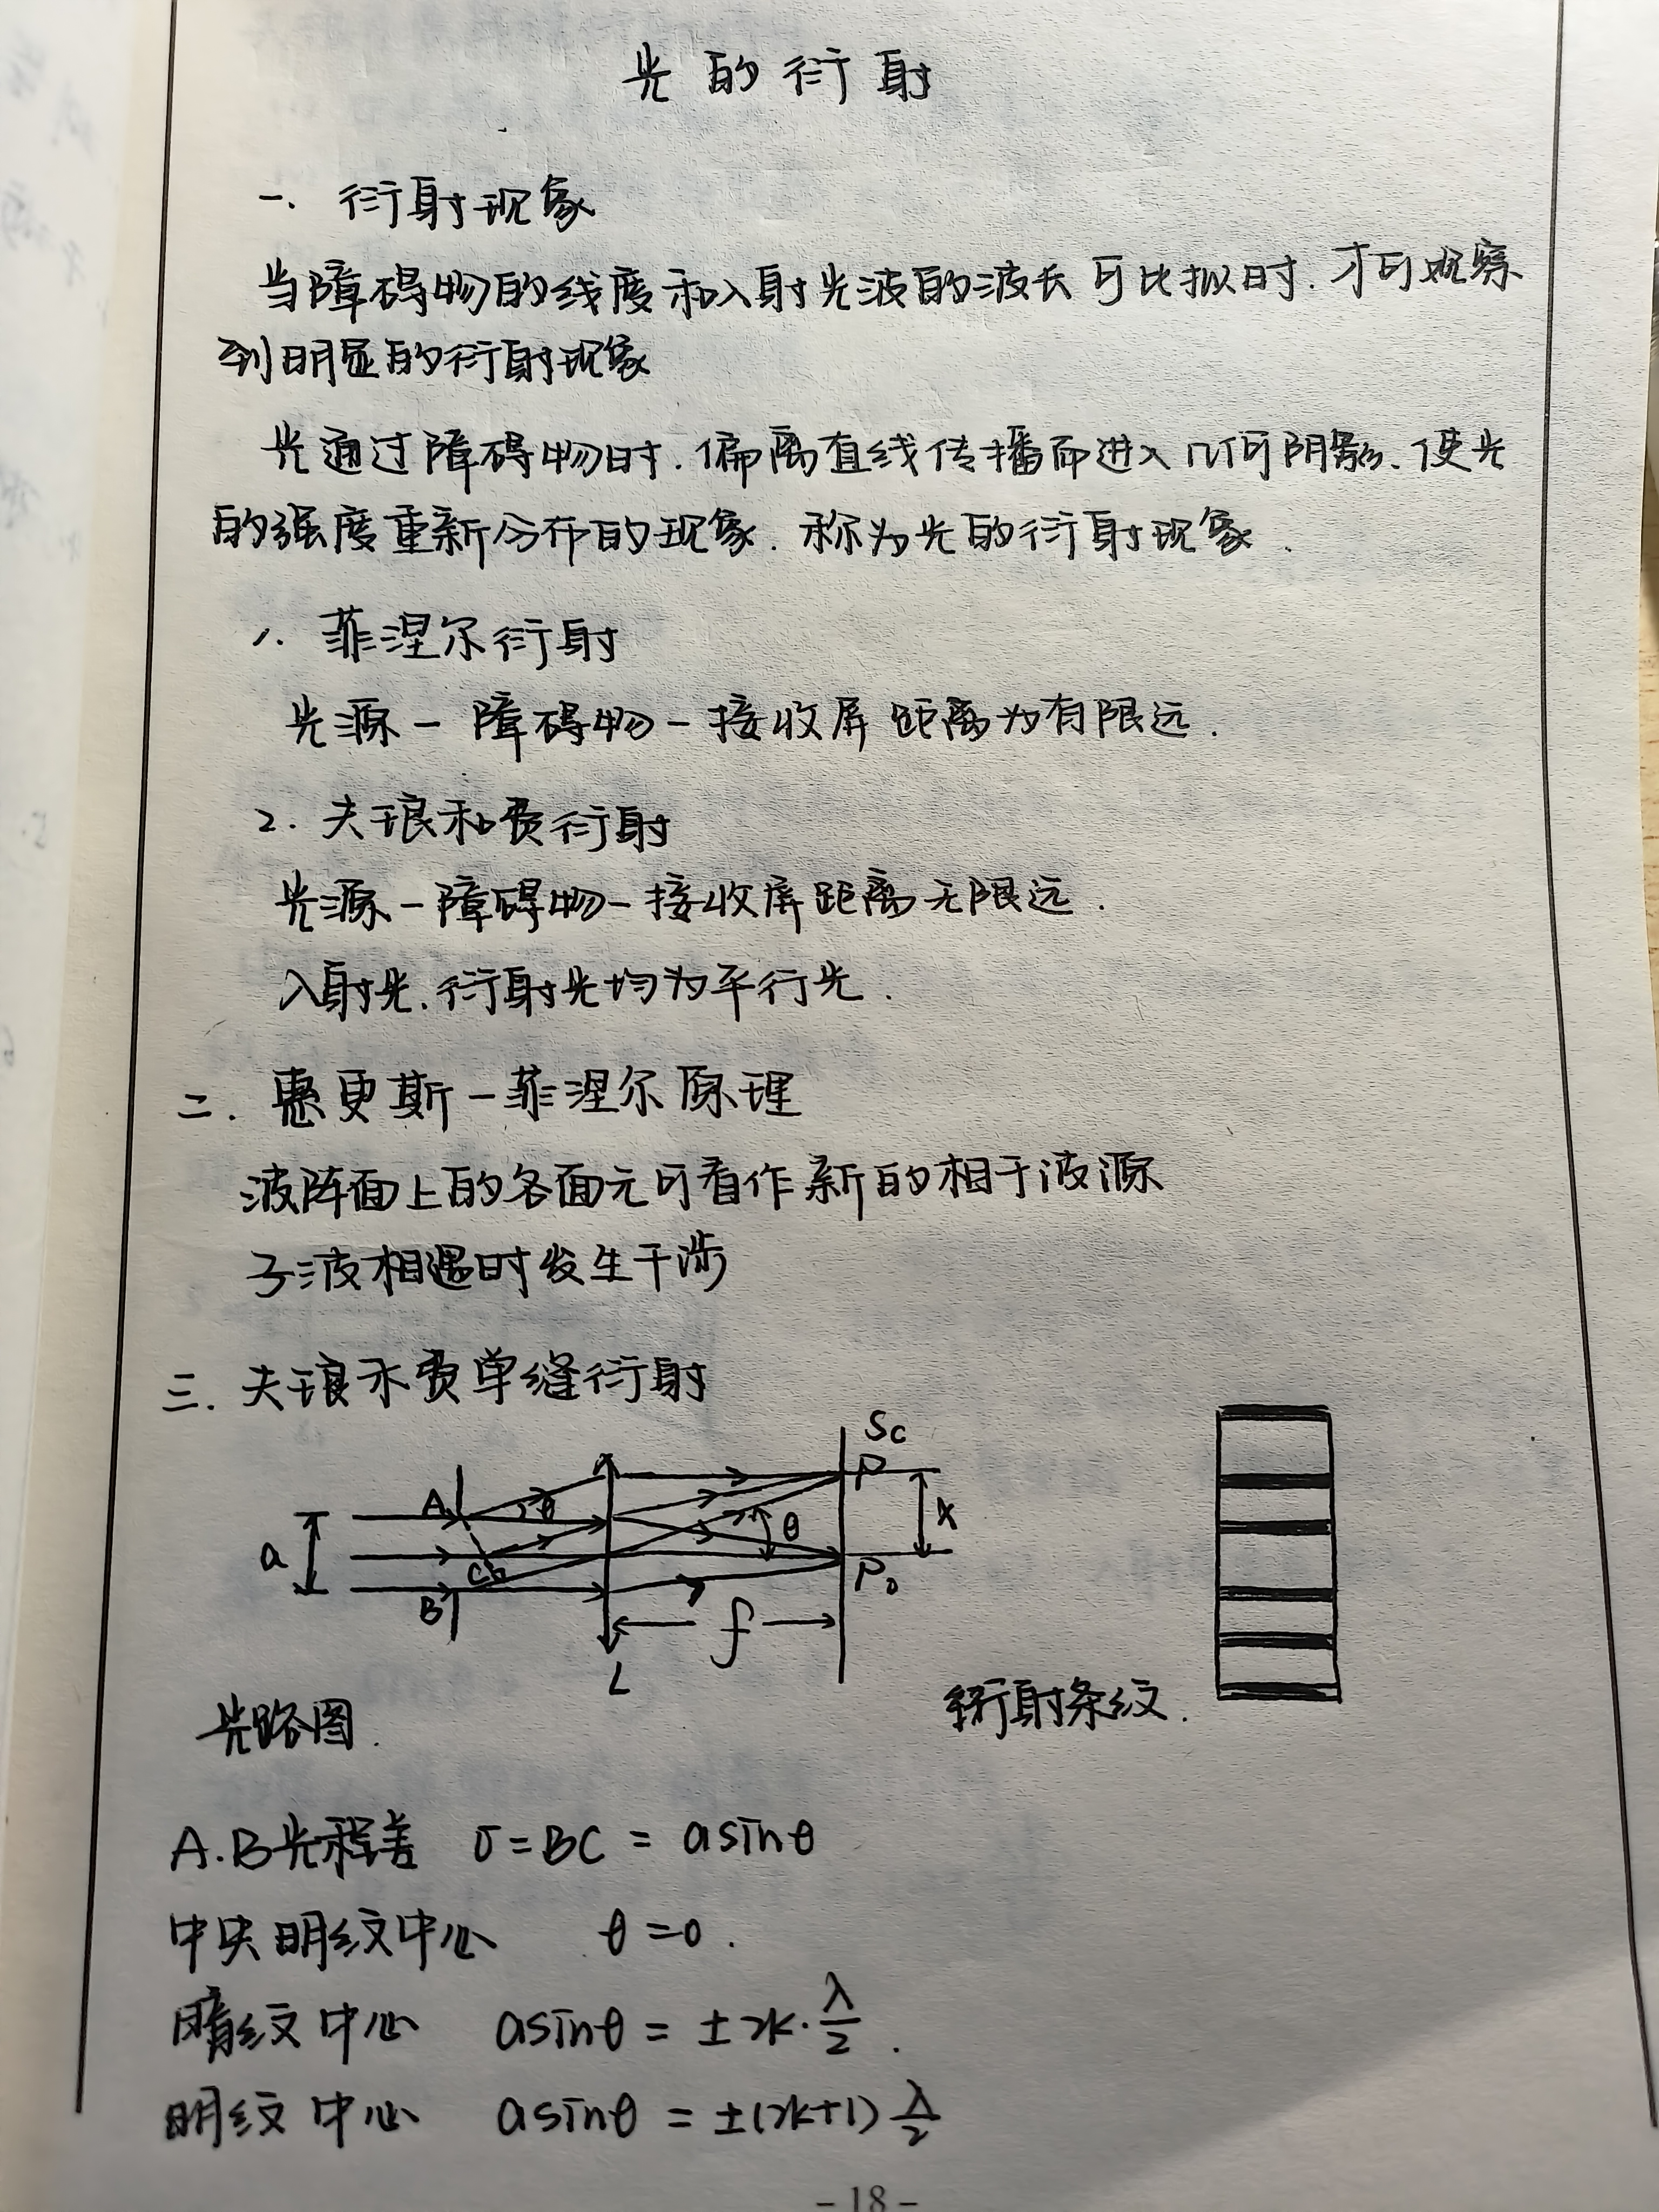 光的衍射
一. 衍射现象
当障碍物的线度和入射光波的波长可比拟时.才可观察
到明显的衍射现象
光通过障碍物时.偏离直线传播而进入几何阴影.使光
的强度重新分布的现象.称为光的衍射现象.
1. 菲涅尔衍射
光源-障碍物-接收屏 距离为有限远.
2. 夫琅和费衍射
光源-障碍物-接收屏距离无限远.
入射光.衍射光均为平行光.
二. 惠更斯-菲涅尔原理
波阵面上的各面元可看作新的相干波源
子波相遇时发生干涉
三. 夫琅禾费单缝衍射
Sc
P
A θ
x
a
θ
C
P₀
B
f
L
衍射条纹.
光路图.
A.B光程差 δ=BC = asinθ
中央明纹中心 θ=0.
暗纹中心 asinθ = ±2k·λ/2.
明纹中心 asinθ = ±(2k+1)λ/2
-18-